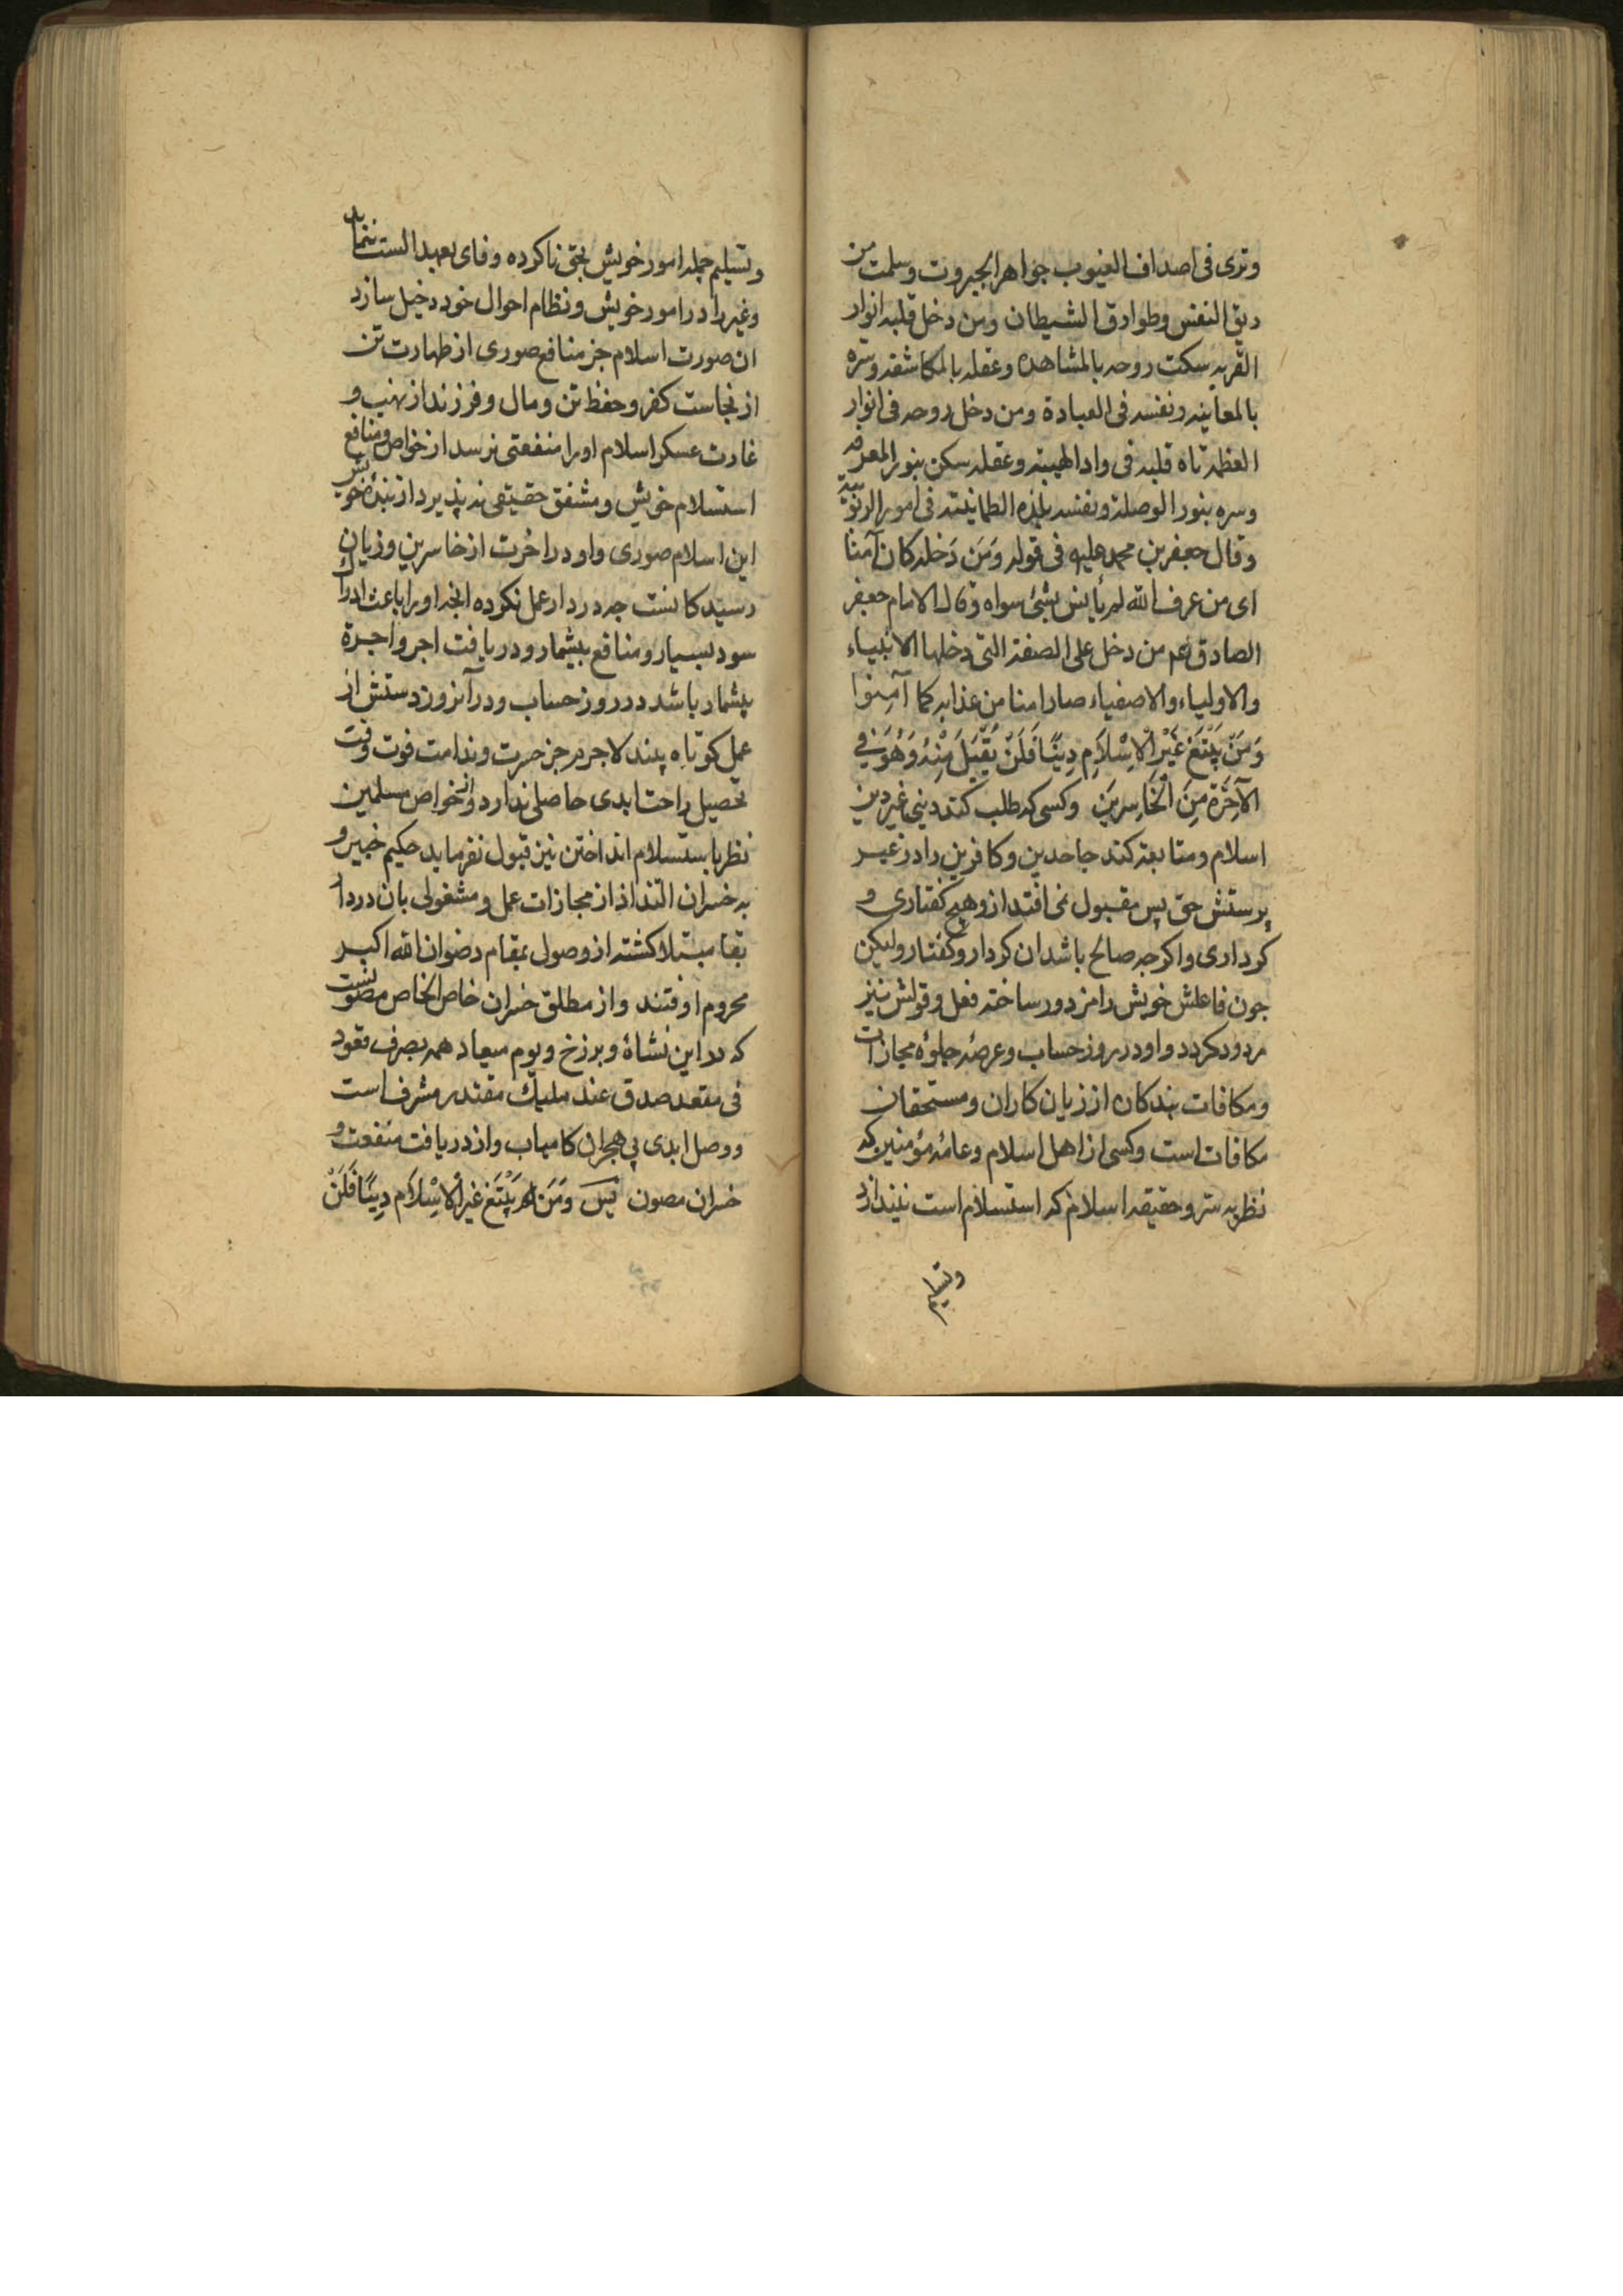 وتری فی اصداف الغیوب جواهر الجبروت وسلمت من
ریق النفس وطوارق الشیطان ومن دخل قلبه انوار
القربه سکت روحه بالمشاهده وعقله بالمکاشفه وسره
بالمعاینه ونفسه فی العبادة ومن دخل روحه فی انوار
العظمة تاه قلبه فی واد الهیبته وعقله سکن بنور المعرفه
وسره بنور الوصلة ونفسه بلذه الطمانینة فی امور الربوبیّة
وقال جعفر بن محمد علیه فی قوله وَمَن دَخله کان آمنا
ای من عرف الله لم یأنس بشئ سواه وقال الامام جعفر
الصادق عم من دخل علی الصفة التی دخلها الانبیاء
والاولیاء والاصفیاء صار امنا من عذابه کما آمِنوا
وَمَنْ یَبْتَغِ غَیْرَ الْاِسْلَامِ دِینًا فَلَنْ یُقْبَلَ مِنْهُ وَهُوَ فِی
الآخِرَةِ مِنَ الْخَاسِرِینَ وکسی که طلب کند دینی غیر دین
اسلام ومتابعة کند جاحدین وکافرین را در غیر
پرستش حق پس مقبول نمی افتد از و هیچ کفتاری و
کرداری واکرچه صالح باشد ان کردار وکفتار ولیکن
جون فاعلش خویش را مزدور ساخته فعل وقولش نیز
مردود کردد واو در روز حساب وعرصهٔ جلوهٔ مجازات
ومکافات بندکان از زیان کاران ومستحقان
مکافات است وکسی از اهل اسلام وعامهٔ مؤمنین که
نظر به سر وحقیقه اسلام که استسلام است نیندازد
وتسلیم
وتسلیم جمله امور خویش بحق ناکرده وفای بعهد الست ننماید
وغیر را در امور خویش ونظام احوال خود دخیل سازد
ان صورت اسلام جز منافع صوری از طهارت تن
از نجاست کفر وحفظ تن ومال وفرزند از نهب و
غارت عسکر اسلام اورا منفعتی نرسد از خواص ومنافع
استسلام خویش ومشفق حقیقی نه پذیرد از بندهٔ خویش
این اسلام صوری واو در اخرت از خاسرین وزیان
رسیدکانست جه در دار عمل نکرده انجه اورا باعث ادراک
سود بسیار ومنافع بیشمار ودریافت اجر واجرة
بیشمار باشد در روز حساب ودر آنروز دستش از
عمل کوتاه بیند لا جرم جز حسرت وندامت فوت وقت
تحصیل راحت ابدی حاصلی ندارد واز خواص مسلمین
نظر باستسلام انداختن نین قبول نفرماید حکیم خبیر و
به خسران التذاذ از مجازات عمل ومشغولی بان در دار
بقا مبتلا کشته از وصول بمقام رضوان الله اکبر
محروم اوفتند واز مطلق خسران خاص الخاص مصونست
که در این نشاهٔ وبرزخ ویوم میعاد همه بصرف قعود
فی مقعد صدق عند ملیک مقتدر مشرف است
ووصل ابدی بی هجران کامیاب واز دریافت منفعت و
خسران مصون پس وَمَن لم یَبْتَغِ غیر الْاِسْلَامِ دِینًا فَلَنْ